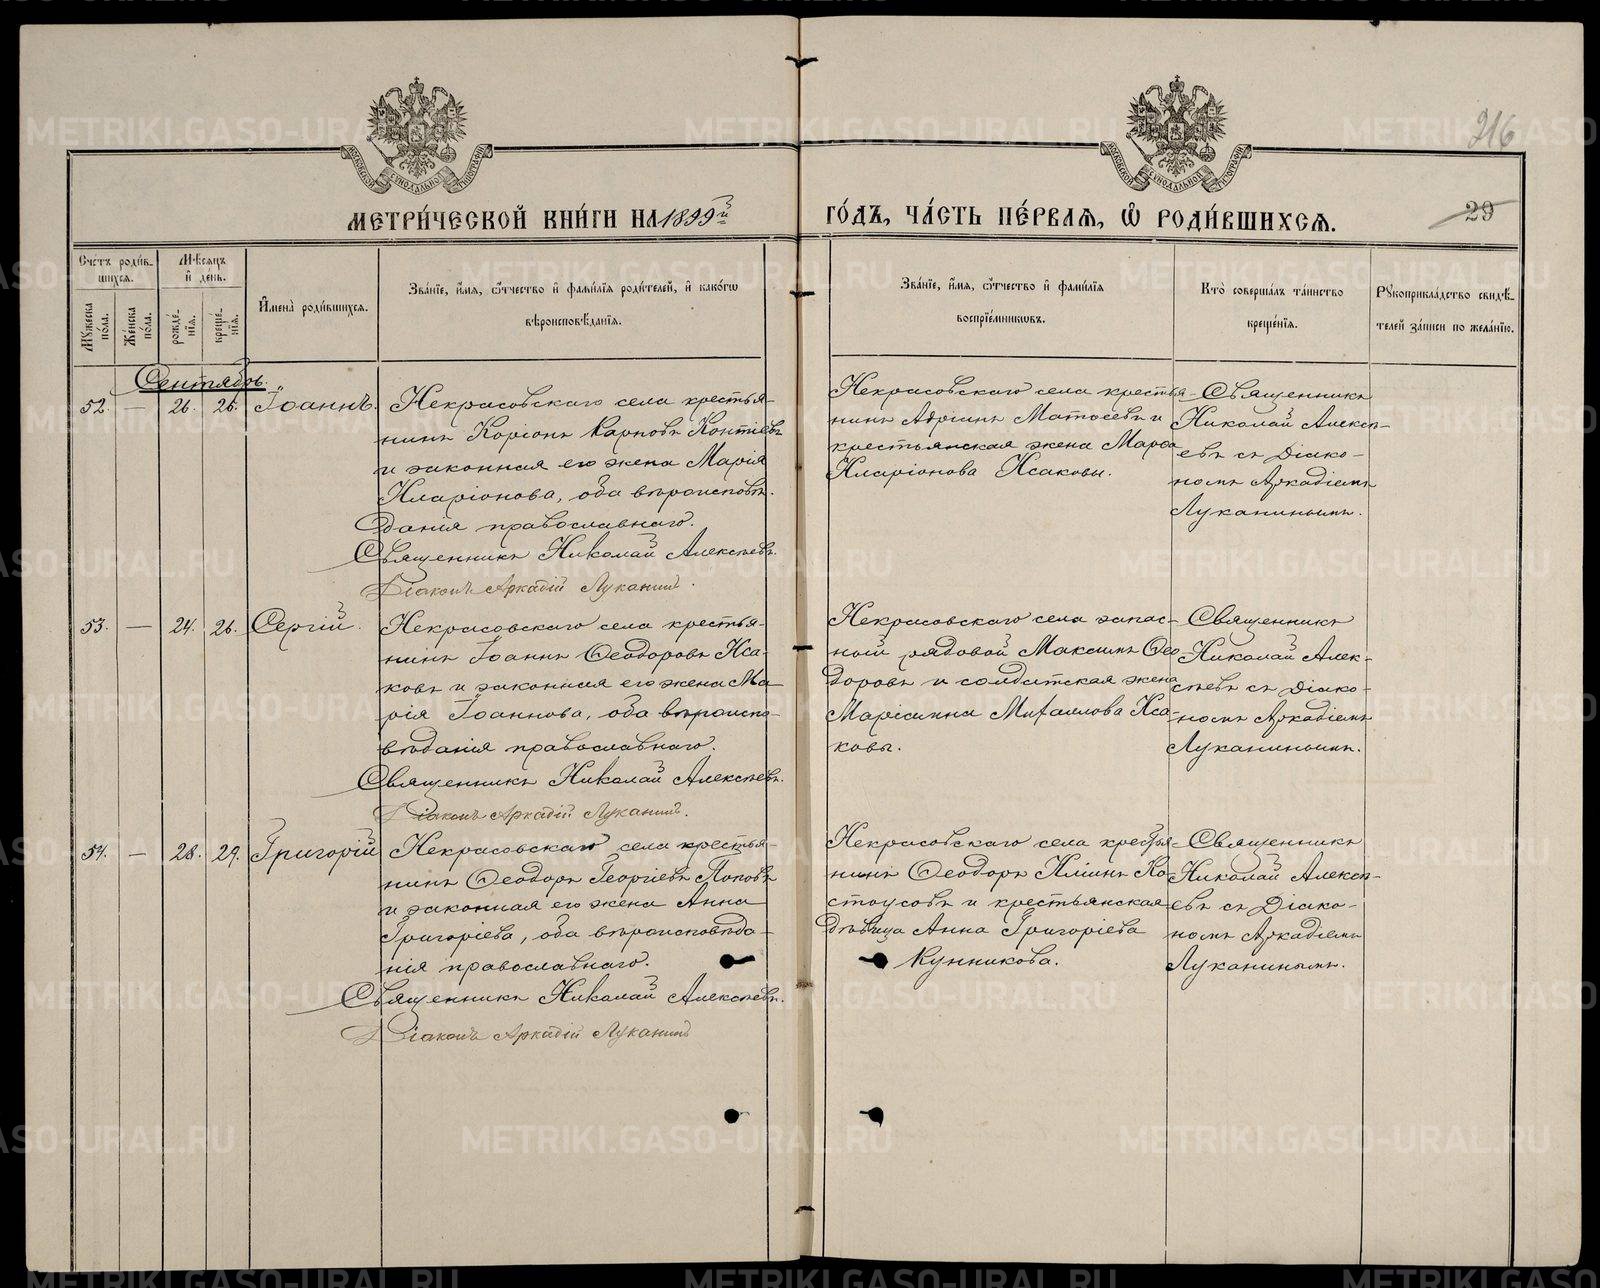 216
МОСКОВСКОЙ СѴНОДАЛЬНОЙ ТИПОГРАФІИ
МОСКОВСКОЙ СѴНОДАЛЬНОЙ ТИПОГРАФІИ
МЕТРИ́ЧЕСКОЙ КНИ́ГИ НА 1899й
ГО́ДЪ, ЧА́СТЬ ПЕ́РВАѦ, Ѡ РОДИ́ВШИХСѦ.
29
Сче́тъ роди́в-
шихсѧ.
Мѣ́сѧцъ
и҆ де́нь.
Мꙋ́жеска по́ла.
Же́нска по́ла.
рожде́-нїѧ.
креще́-нїѧ.
И҆мена̀ роди́вшихсѧ.
Зва́нїе, и҆́мѧ, ѻ҆́тчество и҆ фами́лїѧ роди́телей, и҆ како́гѡ
вѣроисповѣ́данїѧ.
Зва́нїе, и҆́мѧ, ѻ҆́тчество и҆ фами́лїѧ
воспрїе́мникѡвъ.
Кто̀ соверша́лъ та́инство
креще́нїѧ.
Рꙋкоприкла́дство свидѣ́-
телей за́писи по жела́нїю.
Сентябрь.
52. — 26. 26. Іоаннъ.
Некрасовскаго села крестья-
нинъ Карповъ
и законная его жена Марія
Иларіонова, оба вѣроисповѣ-
данія православнаго.
Священникъ Николай Алексѣевъ.
Діаконъ Аркадій Луканинъ.
Некрасовскаго села крестья-
нинъ Адріанъ и
крестьянская жена Марѳа
Иларіонова Исаковы.
Священникъ
Николай Алексѣ-
евъ съ Діако-
номъ Аркадіемъ
Луканинымъ.
53. — 24. 26. Сергій.
Некрасовскаго села крестья-
нинъ Іоаннъ Ѳеодоровъ Иса-
ковъ и законная его жена Ма-
рія Іоаннова, оба вѣроиспо-
вѣданія православнаго.
Священникъ Николай Алексѣевъ.
Діаконъ Аркадій Луканинъ.
Некрасовскаго села запас-
ной рядовой Максимъ Ѳео-
доровъ и солдатская жена
Маріамна Михаилова Иса-
ковы.
Священникъ
Николай Алек-
сѣевъ съ Діако-
номъ Аркадіемъ
Луканинымъ.
54. — 28. 29. Григорій
Некрасовскаго села крестья-
нинъ Ѳеодоръ Георгіевъ Поповъ
и законная его жена Анна
Григоріева, оба вѣроисповѣда-
нія православнаго.
Священникъ Николай Алексѣевъ.
Діаконъ Аркадій Луканинъ
Некрасовскаго села крестья-
нинъ Ѳеодоръ Иліинъ Ко-
стоусовъ и крестьянская
дѣвица Анна Григоріева
Кунникова.
Священникъ
Николай Алексѣ-
евъ съ Діако-
номъ Аркадіемъ
Луканинымъ.
METRIKI.GASO-URAL.RU